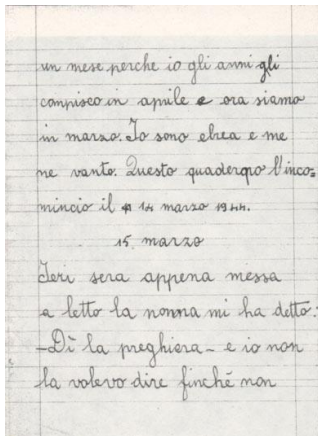 un mese perche io gli anni gli
compisco in aprile e ora siamo
in marzo. Io sono ebrea e me
ne vanto. Questo quaderno l'inco=
mincio il 14 marzo 1944.
15 marzo
Ieri sera appena messa
a letto la nonna mi ha detto:
-Dì la preghiera- e io non
la volevo dire finché non